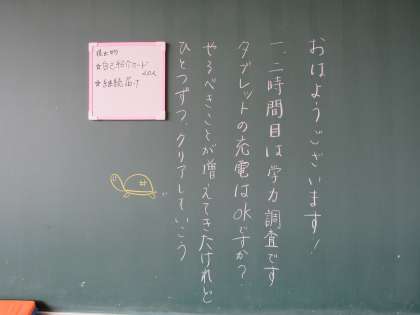 おはようございます!
一、二時間目は学力調査です
タブレットの充電はOKですか?
やるべきことが増えてきたけれど
ひとつずつ、クリアしていこう
提出物
☆自己紹介カード
☆継続届け